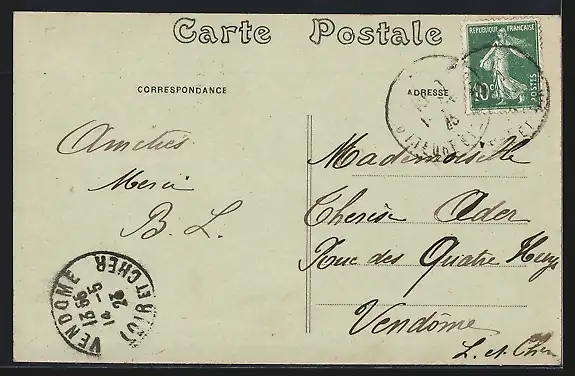 Carte Postale
CORRESPONDANCE
ADRESSE
REPUBLIQUE FRANÇAISE
10c
POSTES
Amitiés
Merci
B. L.
Mademoiselle
Therèse Ader
Rue des Quatre Huyes
Vendôme
L. et Cher
VENDOME
13 55
14 -5
23
LOIR ET CHER